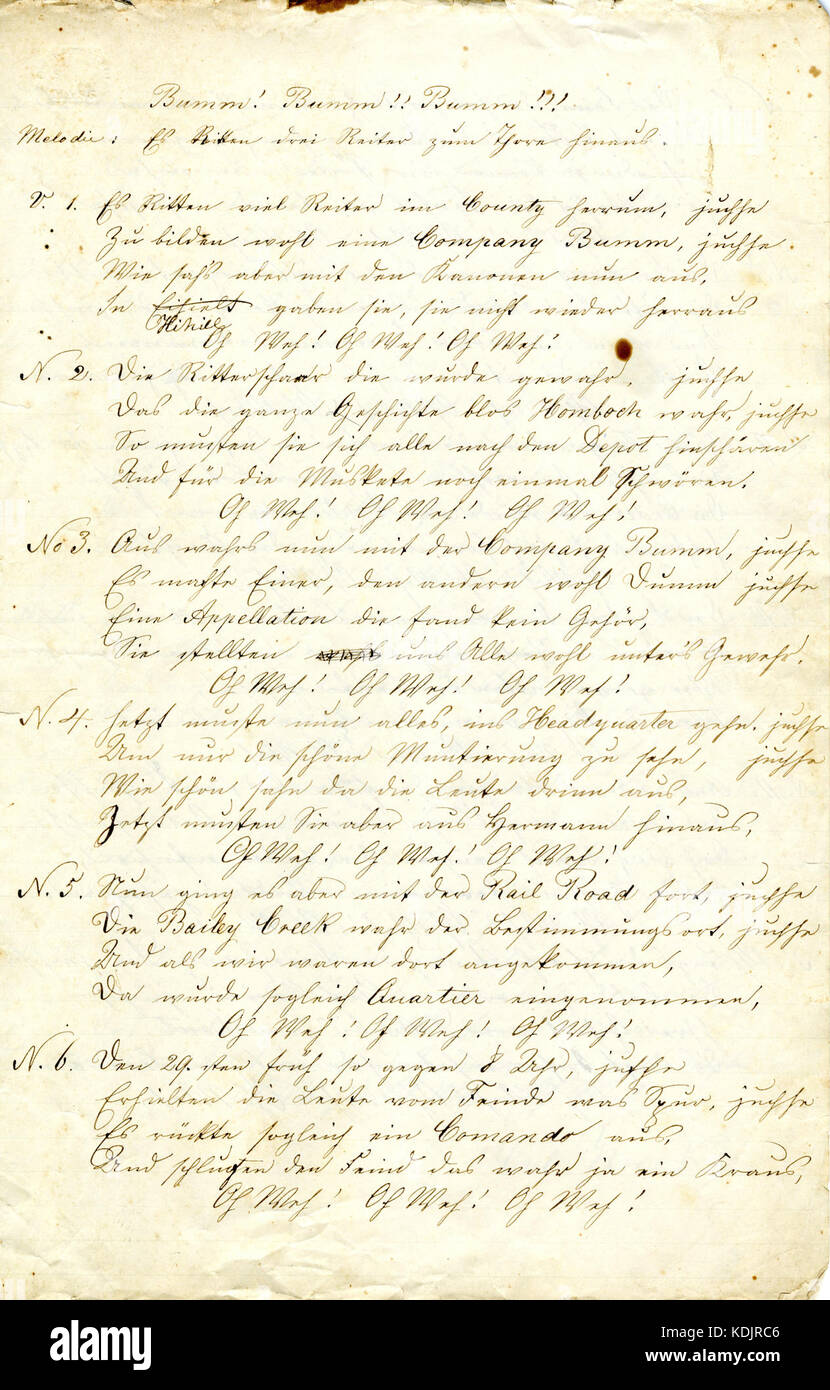 Bumm! Bumm!! Bumm!!!
Melodie: Es Ritten drei Reiter zum Thore hinaus.
V. 1. Es Ritten viel Reiter im County herrum, juchhe
Zu bilden wohl eine Company Bumm, juchhe.
Wie sah's aber mit den Kanonen nun aus,
In gaben sie, sie nicht wieder herraus
Oh Weh! Oh Weh! Oh Weh!
N. 2. Die Ritterschaar die wurde gewahr, juchhe
Das die ganze Geschichte blos Homboch wahr, juchhe
So mussten sie sich alle nach den Depot hinscheren
Und für die Muskete noch einmal Schwören.
Oh Weh! Oh Weh! Oh Weh!
No 3. Aus wahrs nun mit der Company Bumm, juchhe
Es machte Einer, den andern wohl Dumm juchhe
Eine Appellation die fand kein Gehör,
Sie stellten uns Alle wohl unter's Gewehr.
Oh Weh! Oh Weh! Oh Weh!
N. 4. Jetzt musste nun alles, ins Headquarter gehn. juchhe
Um nur die schöne Muntierung zu sehn, juchhe
Wie schön sahn da die Leute drinn aus,
Jetzt mussten Sie aber aus Hermann hinaus,
Oh Weh! Oh Weh! Oh Weh!
N. 5. Nun ging es aber mit der Rail Road fort, juchhe
Die Bailey Creek wahr der Bestimmungsort, juchhe
Und als wir waren dort angekommen,
Da wurde sogleich Quartier eingenommen,
Oh Weh! Oh Weh! Oh Weh!
N. 6. Den 29.sten früh so gegen 8 Uhr, juchhe
Erhielten die Leute vom Feinde was Spur, juchhe
Es rückte sogleich ein Comando aus,
Und schlugen den Feind das wahr ja ein Kraus,
Oh Weh! Oh Weh! Oh Weh!
alamy
Image ID: KDJRC6
www.alamy.com